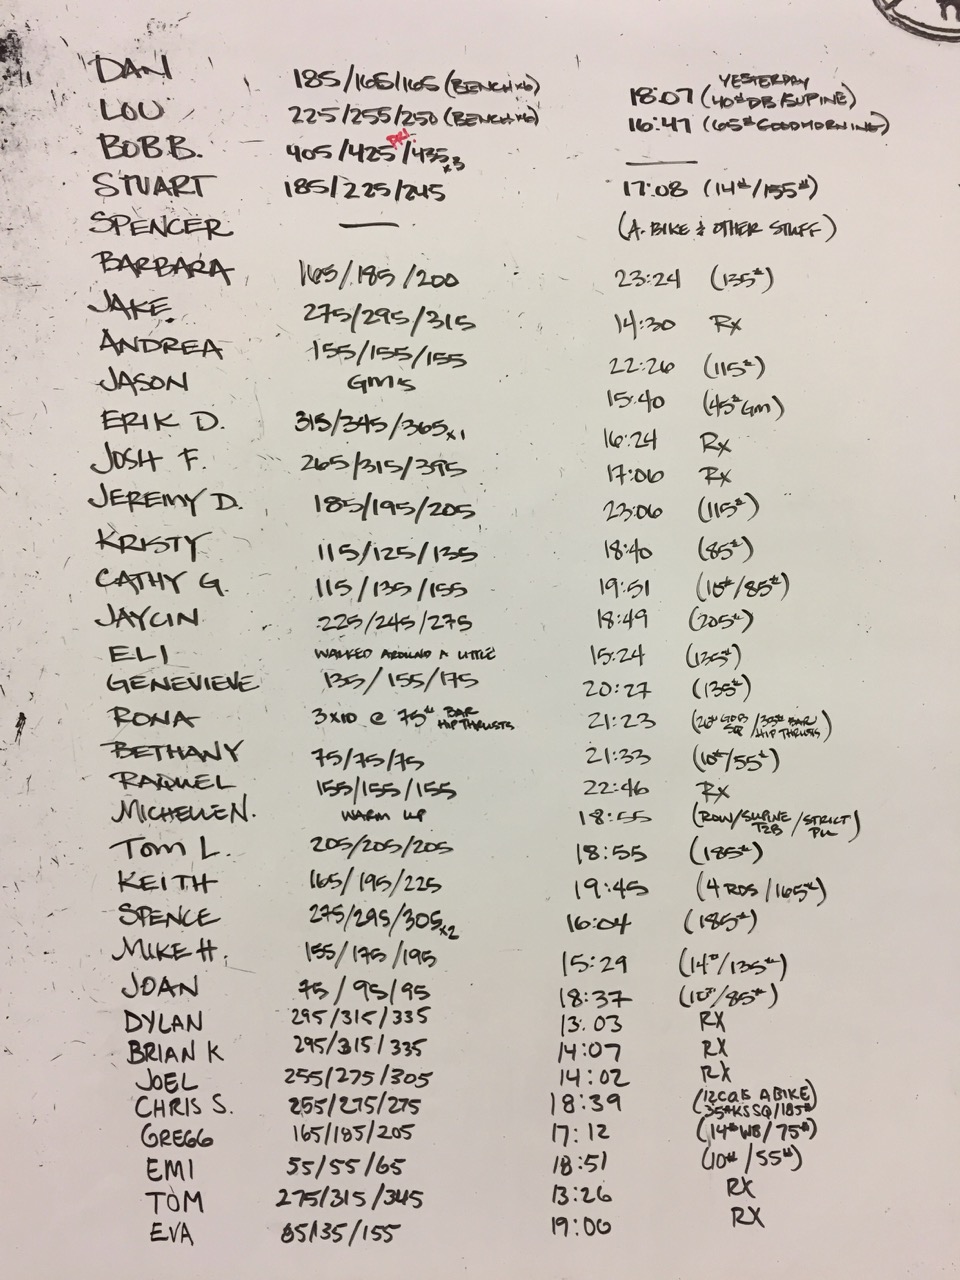 DAN 185/165/165 (BENCH x6) 18:07 (YESTERDAY 40# DB/SUPINE)
LOU 225/255/250 (BENCH x6) 16:47 (65# GOODMORNING)
BOB B. 405/425/435 x3 PR! —
STUART 185/225/245 17:08 (14#/155#)
SPENCER — (A. BIKE & OTHER STUFF)
BARBARA 165/185/200 23:24 (135#)
JAKE 275/295/315 14:30 RX
ANDREA 155/155/155 22:26 (115#)
JASON GM'S 15:40 (45# GM)
ERIK D. 315/345/365 x1 16:24 RX
JOSH F. 265/315/395 17:06 RX
JEREMY D. 185/195/205 23:06 (115#)
KRISTY 115/125/135 18:40 (85#)
CATHY G. 115/135/155 19:51 (10#/85#)
JAYCIN 225/245/275 18:49 (205#)
ELI WALKED AROUND A LITTLE 15:24 (135#)
GENEVIEVE 135/155/175 20:27 (135#)
RONA 3x10 @ 75# BAR HIP THRUSTS 21:23 (20# SQ/35# BAR HIP THRUSTS)
BETHANY 75/75/75 21:33 (10#/55#)
RAQUEL 155/155/155 22:46 RX
MICHELLE N. WARM UP 18:55 (ROW/SUPINE T2B/STRICT PU)
TOM L. 205/205/205 18:55 (185#)
KEITH 165/195/225 19:45 (4 RDS/165#)
SPENCE 275/295/305 x2 16:04 (185#)
MIKE H. 155/175/195 15:29 (14#/135#)
JOAN 75/95/95 18:37 (10#/85#)
DYLAN 295/315/335 13:03 RX
BRIAN K 295/315/335 14:07 RX
JOEL 255/275/305 14:02 RX
CHRIS S. 255/275/275 18:39 (12 CALS A BIKE 35# KS SQ/185#)
GREGG 165/185/205 17:12 (14# WB/75#)
EMI 55/55/65 18:51 (10#/55#)
TOM 275/315/345 13:26 RX
EVA 85/135/155 19:00 RX